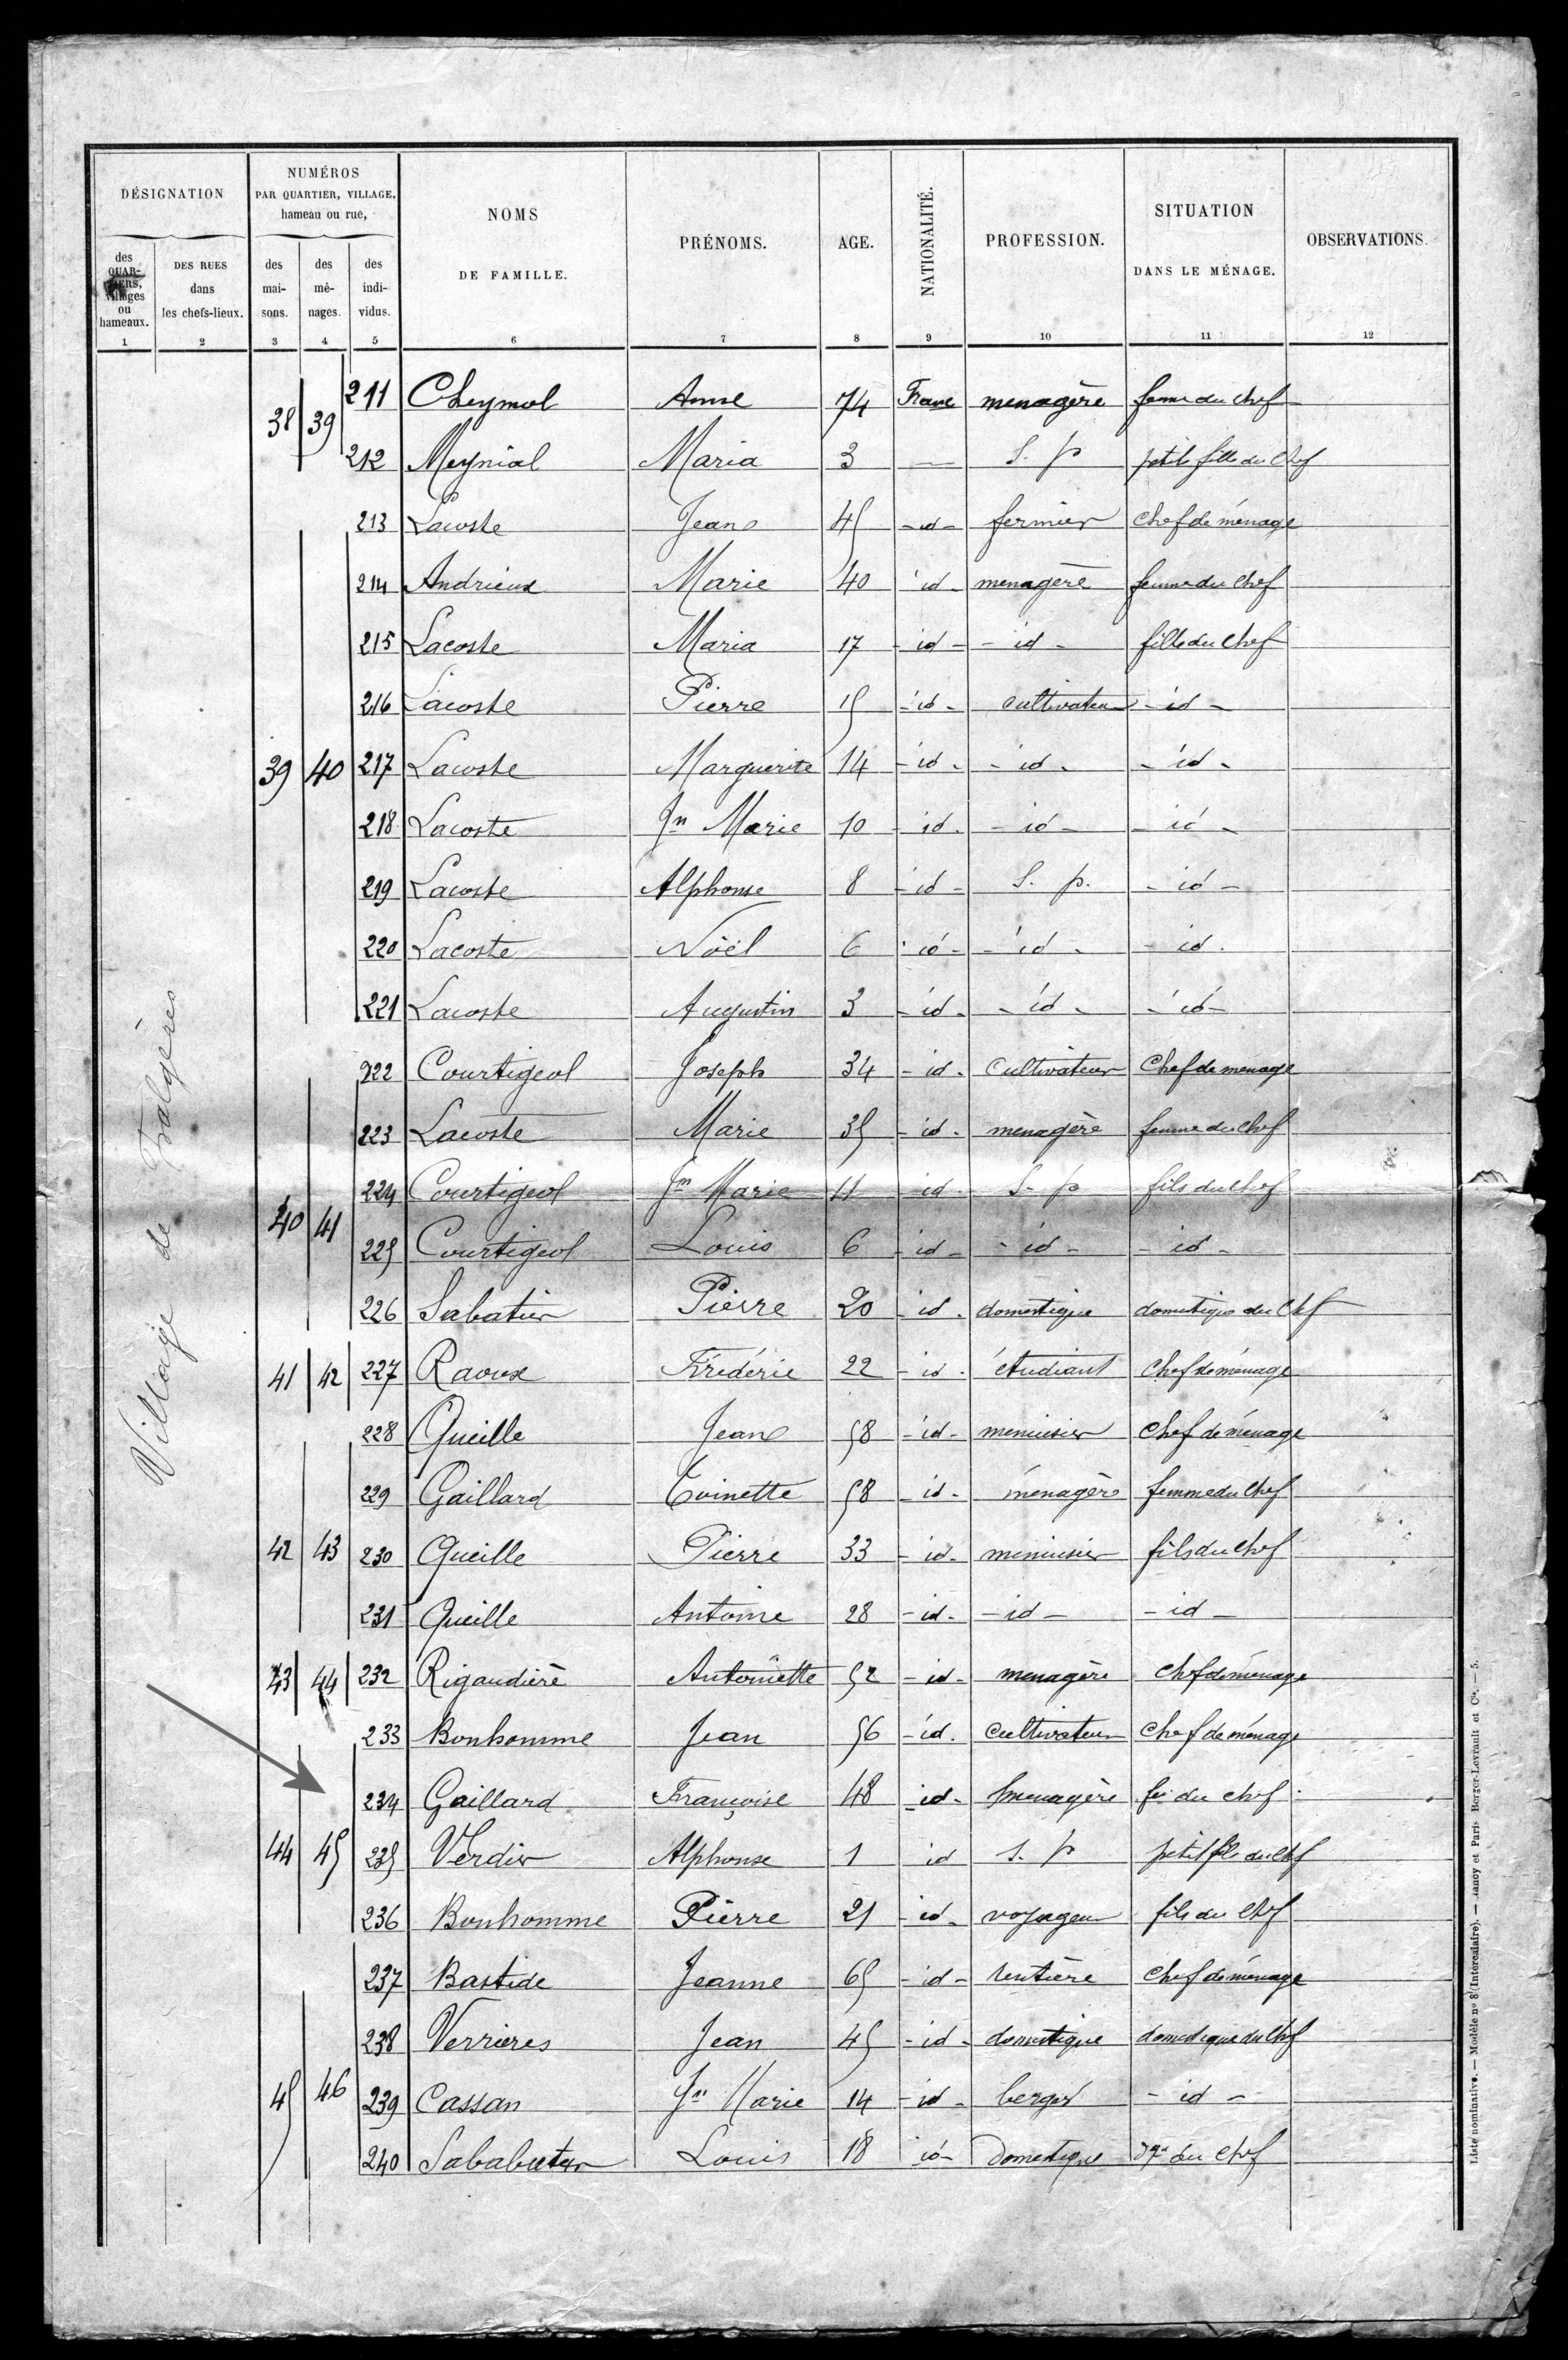 DÉSIGNATION
NUMÉROS
PAR QUARTIER, VILLAGE,
hameau ou rue,
NOMS
DE FAMILLE.
PRÉNOMS.
AGE.
NATIONALITÉ.
PROFESSION.
SITUATION
DANS LE MÉNAGE.
OBSERVATIONS.
des QUARTIERS, villages ou hameaux.
DES RUES dans les chefs-lieux.
des maisons.
des ménages.
des individus.
1 2 3 4 5 6 7 8 9 10 11 12
Village de Falgères
38 39 211 Cheymol Anne 74 Franc menagère femme du chef
212 Meynial Maria 3 — S. p petite fille du chef
213 Lacoste Jean 45 - id - fermier chef de ménage
214 Andrieux Marie 40 id - menagère femme du chef
215 Lacoste Maria 17 - id - - id - fille du chef
216 Lacoste Pierre 15 - id - cultivateur - id -
39 40 217 Lacoste Marguerite 14 - id - - id - - id -
218 Lacoste Jn Marie 10 - id - - id - - id -
219 Lacoste Alphonse 8 - id - S. p. - id -
220 Lacoste Noël 6 - id - - id - - id.
221 Lacoste Augustin 3 - id - - id - - id -
222 Courtigeol Joseph 34 - id - Cultivateur Chef de ménage
223 Lacoste Marie 35 - id - menagère femme du chef
224 Courtigeol Jn Marie 11 - id - S. p fils du chef
40 41 225 Courtigeol Louis 6 - id - - id - - id -
226 Sabatier Pierre 20 - id - domestique domestique du chef
41 42 227 Raoux Frédéric 22 - id - étudiant Chef de ménage
228 Queille Jean 58 - id - menuisier Chef de ménage
229 Gaillard Toinette 58 - id - ménagère femme du chef
42 43 230 Queille Pierre 33 - id - menuisier fils du chef
231 Queille Antoine 28 - id - - id - - id -
43 44 232 Rigaudière Antoinette 52 - id - menagère chef de ménage
233 Bonhomme Jean 56 - id. cultivateur chef de ménage
234 Gaillard Françoise 48 - id - menagère fe du chef
44 45 235 Verdier Alphonse 1 id S. p petit fils du chef
236 Bonhomme Pierre 21 - id - voyageur fils du chef
237 Bastide Jeanne 65 - id - rentière chef de ménage
238 Verrieres Jean 45 - id - domestique domestique du chef
45 46 239 Cassan Jn Marie 14 - id - berger - id -
240 Louis 18 id - Domestique dque du chef
Liste nominative. — Modèle nº 8 (Intercalaire). — Nancy et Paris Berger-Levrault et Cie. — 5.